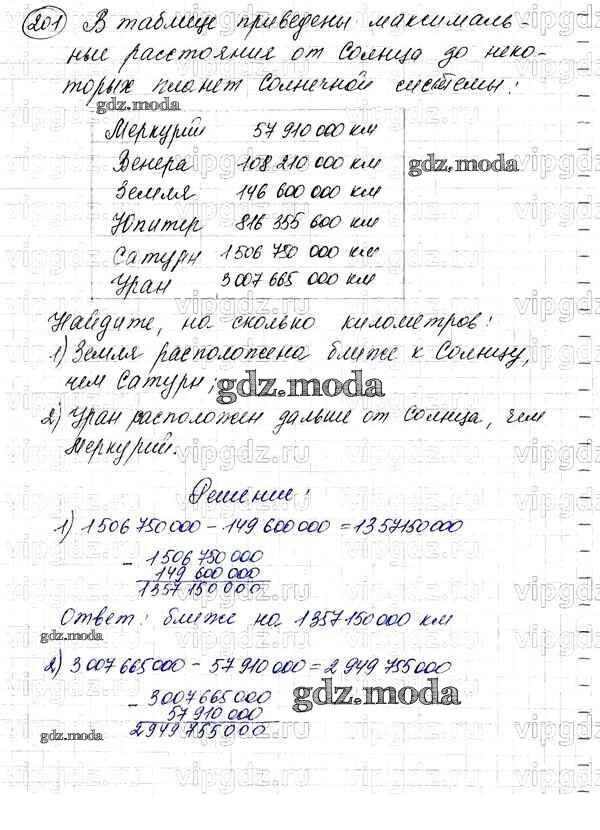 201 В таблице приведены максималь-
ные расстояния от Солнца до неко-
торых планет Солнечной системы:
gdz.moda
Меркурий 57 910 000 км
Венера 108 210 000 км
gdz.moda
Земля 146 600 000 км
Юпитер 816 355 600 км
Сатурн 1 506 750 000 км
Уран 3 007 665 000 км
Найдите, на сколько километров:
1) Земля расположена ближе к Солнцу,
чем Сатурн;
gdz.moda
2) Уран расположен дальше от Солнца, чем
Меркурий.
Решение:
1) 1 506 750 000 - 149 600 000 = 1357150000
- 1506 750 000
149 600 000
1357 150 000
Ответ: ближе на 1357150000 км
gdz.moda
2) 3 007 665 000 - 57 910 000 = 2 949 755000
- 3007 665 000
gdz.moda
57 910 000
2949 755 000
gdz.moda
vipgdz.ru